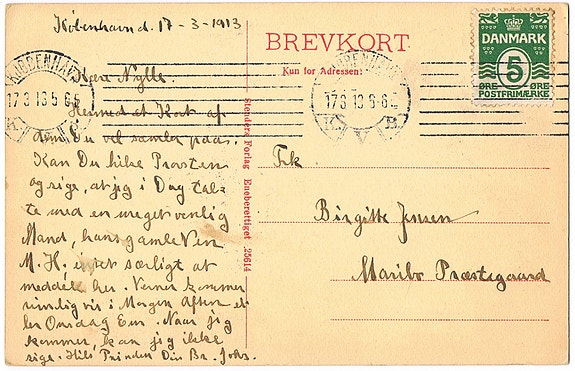 København d. 17 - 3 - 1913
BREVKORT
Kun for Adressen:
DANMARK
5
ØRE ØRE
POSTFRIMÆRKE
KJØBENHAVN
17 3 13 5-6 E
K B
KJØBENHAVN
17 3 13 5-6 E
K V B
Kære Nylle.
Hermed et Kort af
dem Du vil samler paa.
Kan Du hilse Provsten
og sige, at jeg i Dag tal-
te med en meget venlig
Mand, hans gamle Ven
M. H, intet særligt at
meddele her. Verner kommer
rimligvis i Morgen Aften el-
ler Onsdag Em. Naar jeg
kommer, kan jeg ikke
sige. Hils Din Br. Johs.
Stenders Forlag Eneberettiget 25614
Frk.
Birgitte Jensen
Maribo Præstegaard